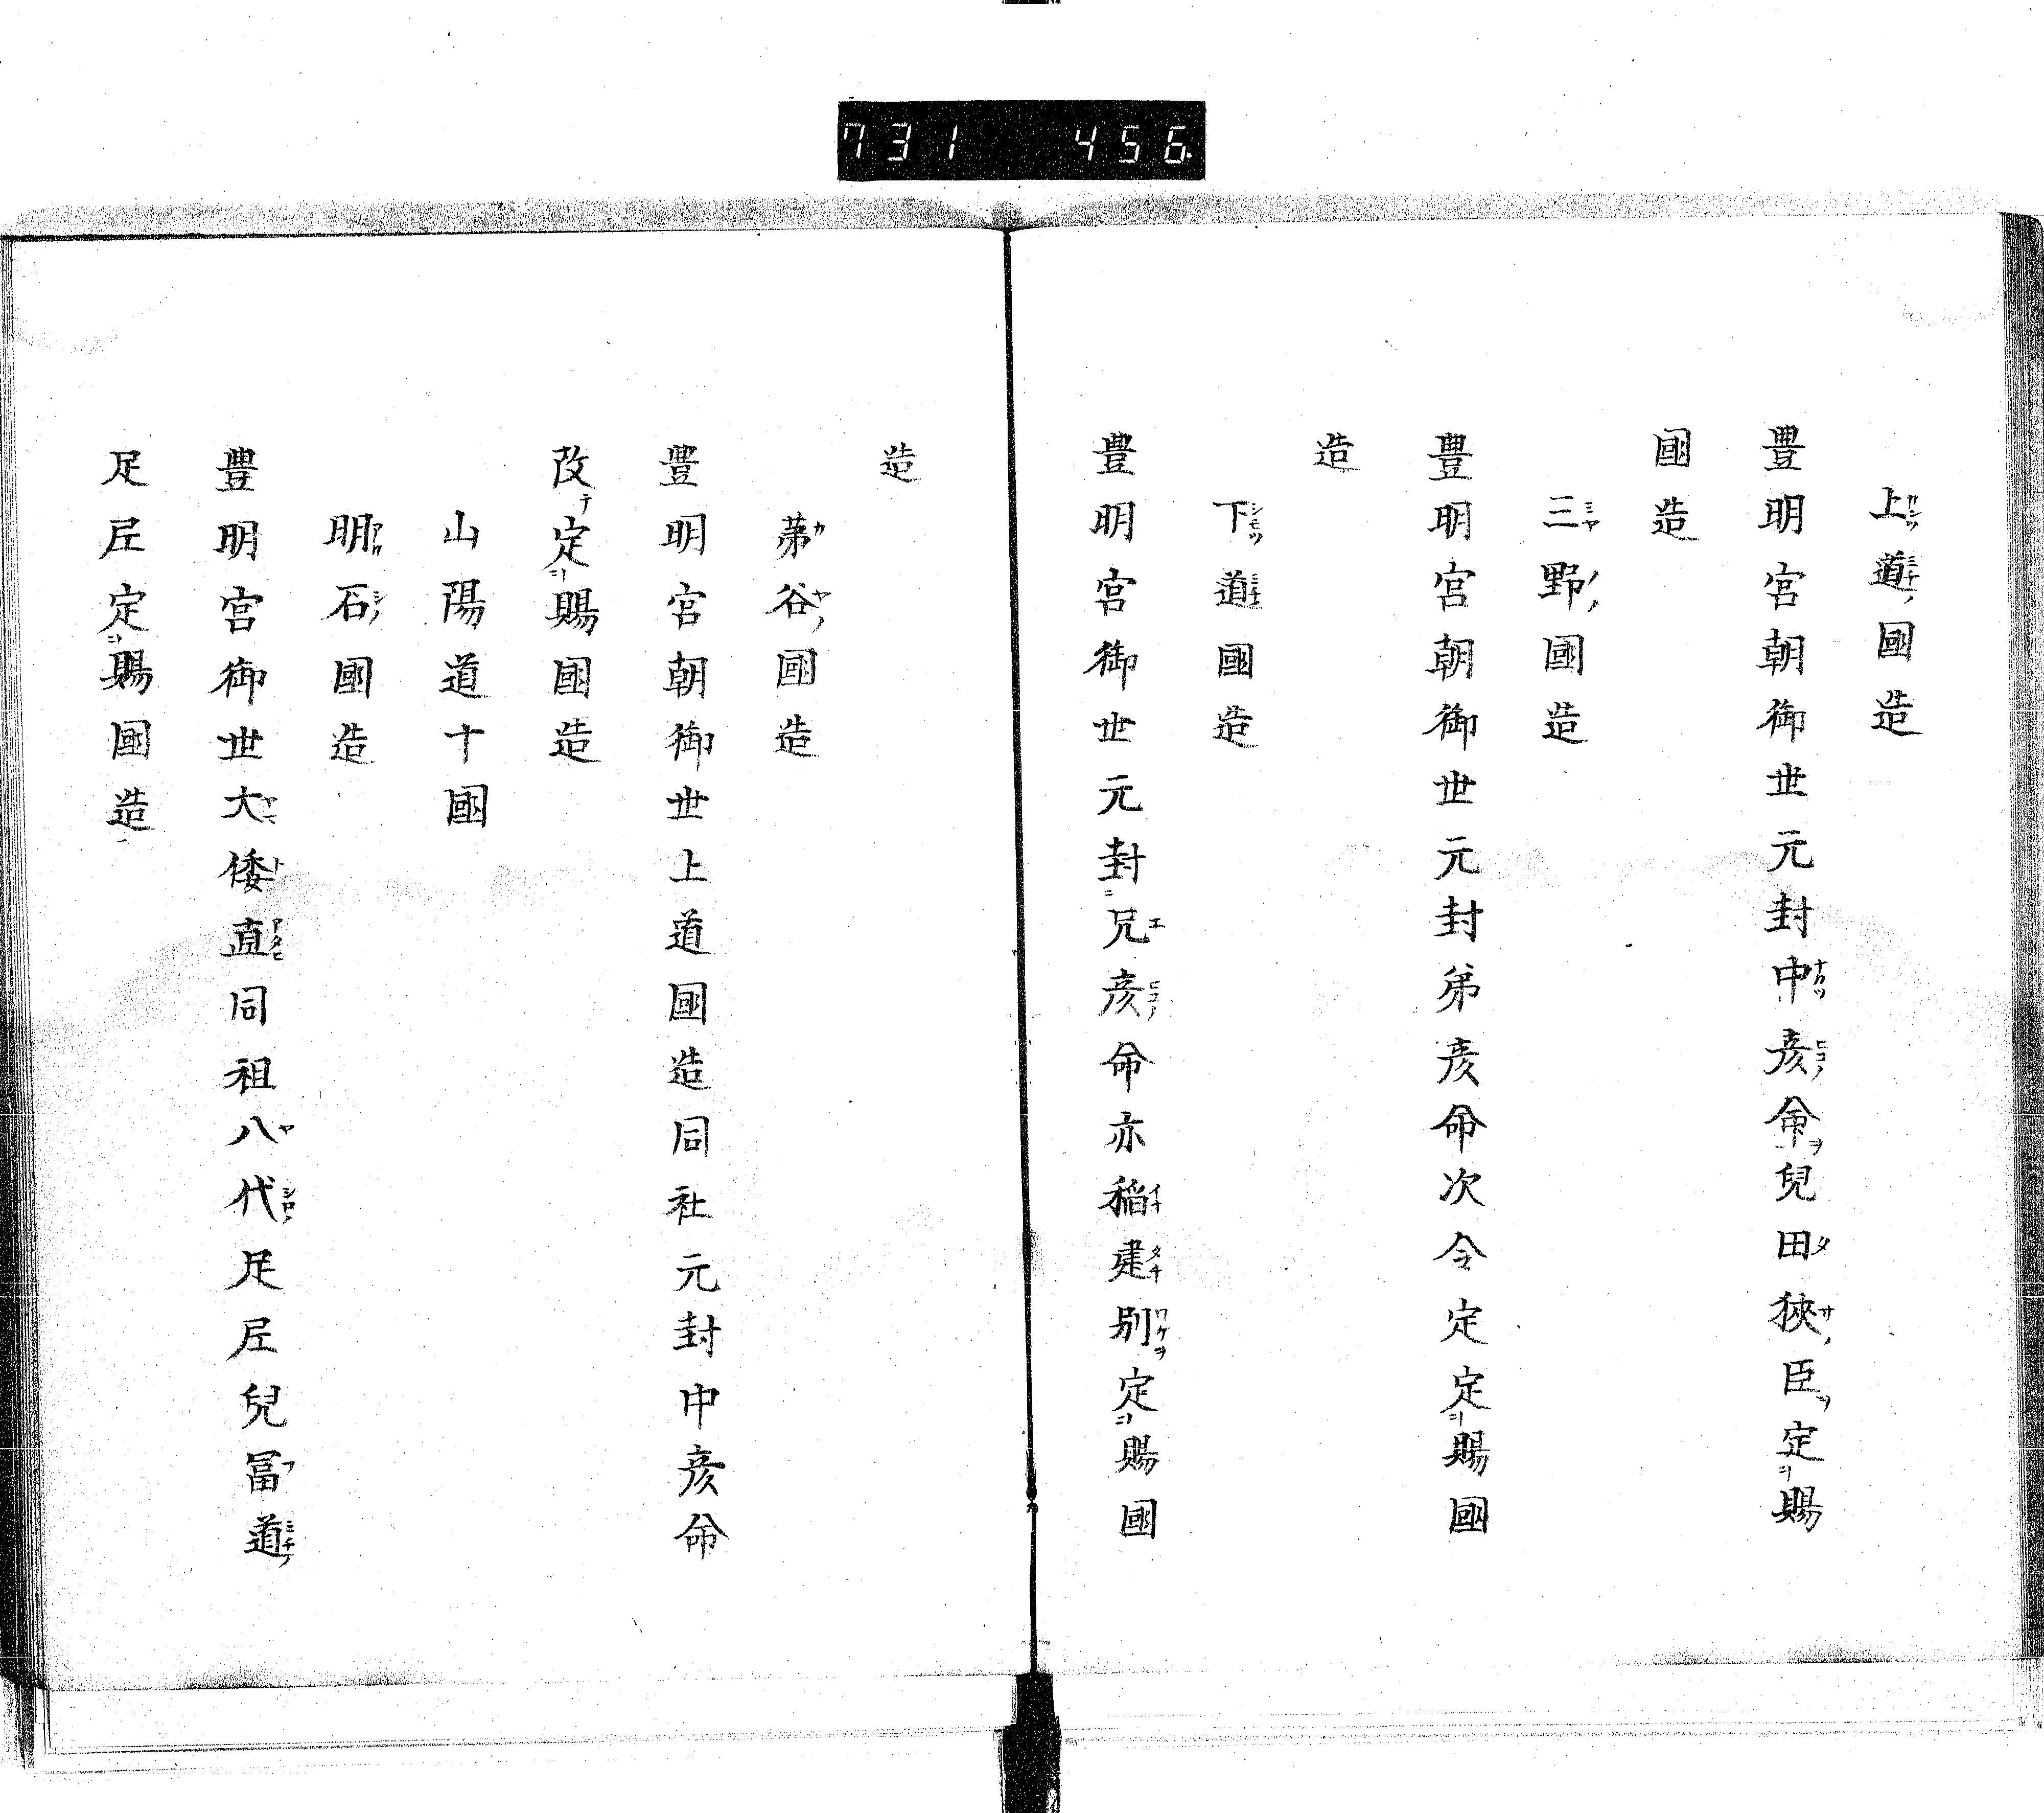 731 456
上道國造
豊明宮朝御世元封中彦命兒田狹臣定賜
國造
三野國造
豊明宮朝御世元封弟彦命次令定定賜國
造
下道國造
豊明宮御世元封兄彦命亦稲建別定賜國
造
苐谷國造
豊明宮朝御世上道國造同社元封中彦命
改定賜國造
山陽道十國
明石國造
豊明宮御世大倭直同祖八代足尼兒冨道
足尼定賜國造